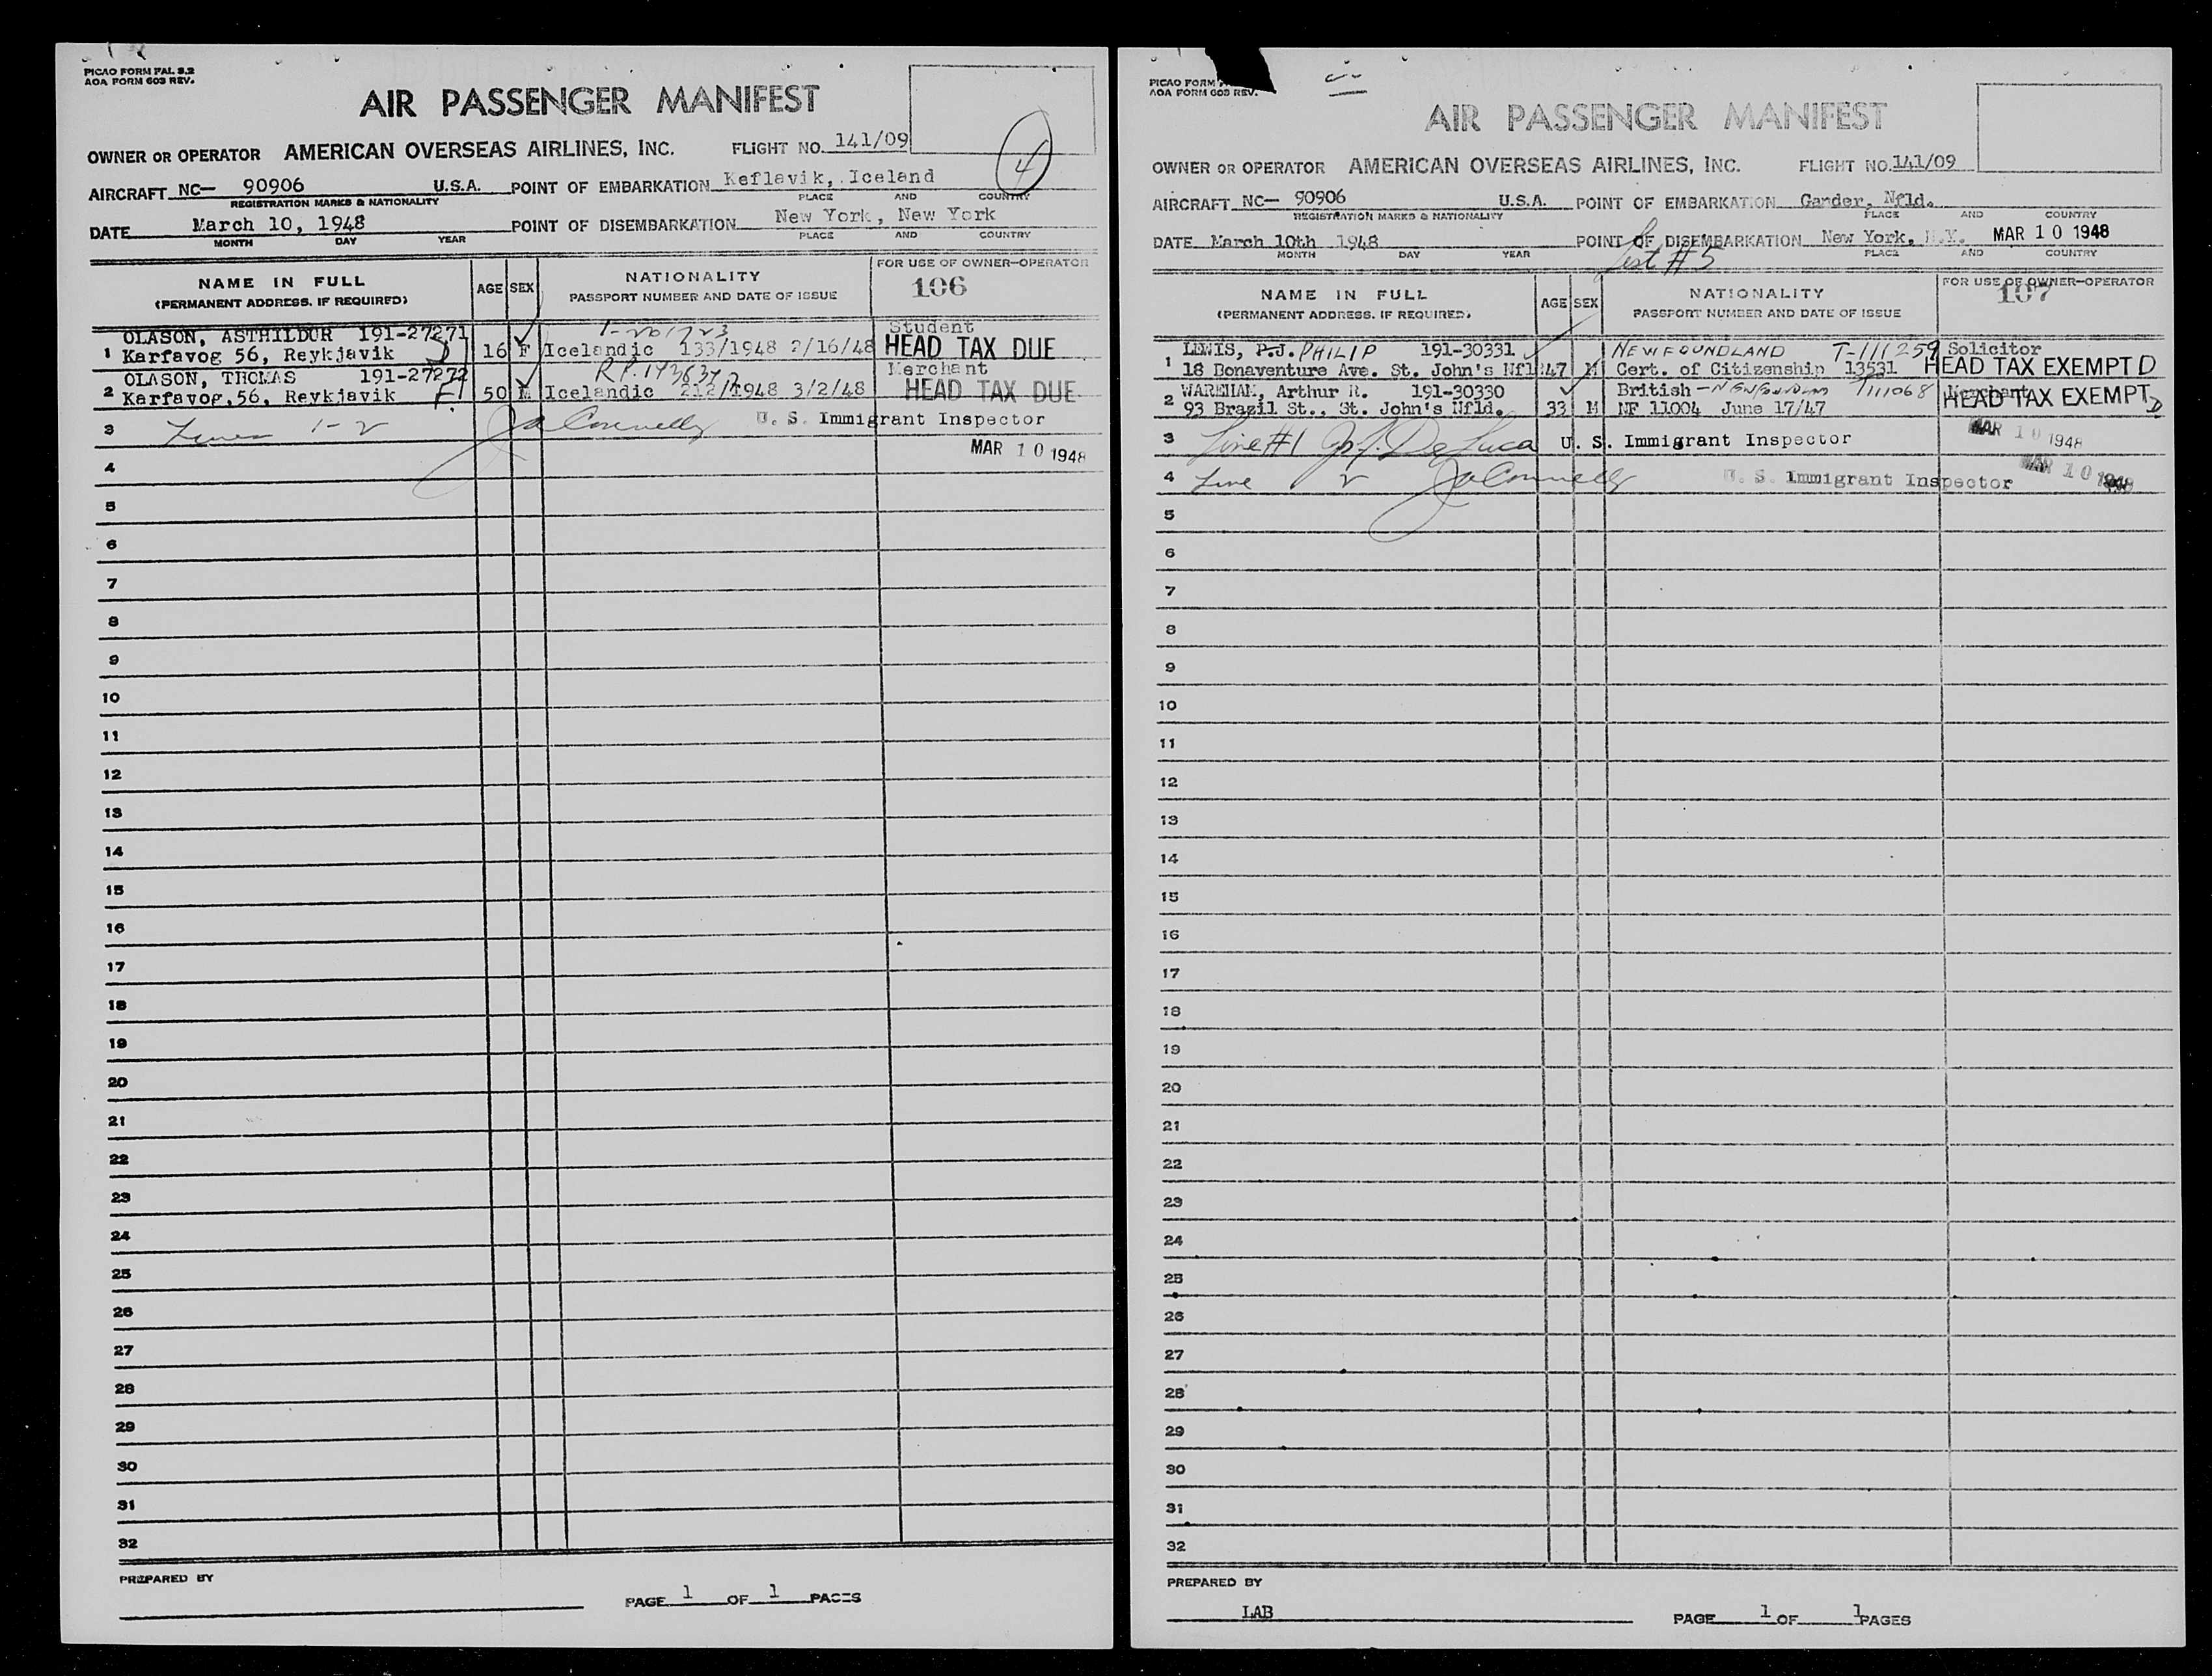 PICAO FORM FAL 3.2
AOA FORM 603 REV.
AIR PASSENGER MANIFEST
4
OWNER OR OPERATOR AMERICAN OVERSEAS AIRLINES, INC. FLIGHT NO. 141/09
AIRCRAFT NC— 90906 U.S.A. POINT OF EMBARKATION Keflavik, Iceland
REGISTRATION MARKS & NATIONALITY PLACE AND COUNTRY
DATE March 10, 1948 POINT OF DISEMBARKATION New York, New York
MONTH DAY YEAR PLACE AND COUNTRY
NAME IN FULL
(PERMANENT ADDRESS, IF REQUIRED)
AGE SEX
NATIONALITY
PASSPORT NUMBER AND DATE OF ISSUE
FOR USE OF OWNER—OPERATOR
106
OLASON, ASTHILDUR 191-27271 Student
1 Karfavog 56, Reykjavik 16 F Icelandic 133/1948 2/16/48 HEAD TAX DUE
OLASON, THOMAS 191-27272 Merchant
2 Karfavog,56, Reykjavik 50 M Icelandic 212/1948 3/2/48 HEAD TAX DUE
3 Lines 1-2 JaConnelly U. S. Immigrant Inspector
4 MAR 10 1948
5
6
7
8
9
10
11
12
13
14
15
16
17
18
19
20
21
22
23
24
25
26
27
28
29
30
31
32
PREPARED BY
PAGE 1 OF 1 PAGES
PICAO FORM
AOA FORM 603 REV.
AIR PASSENGER MANIFEST
OWNER OR OPERATOR AMERICAN OVERSEAS AIRLINES, INC. FLIGHT NO. 141/09
AIRCRAFT NC— 90906 U.S.A. POINT OF EMBARKATION Gander, Nfld.
REGISTRATION MARKS & NATIONALITY PLACE AND COUNTRY
DATE March 10th 1948 POINT OF DISEMBARKATION New York, N.Y. MAR 10 1948
MONTH DAY YEAR PLACE AND COUNTRY
List #5
NAME IN FULL
(PERMANENT ADDRESS, IF REQUIRED)
AGE SEX
NATIONALITY
PASSPORT NUMBER AND DATE OF ISSUE
FOR USE OF OWNER—OPERATOR
107
LEWIS, P.J. PHILIP 191-30331 NEWFOUNDLAND T-111259 Solicitor
1 18 Bonaventure Ave. St. John's Nfl 47 M Cert. of Citizenship 13531 HEAD TAX EXEMPT D
WAREHAM, Arthur R. 191-30330 British - Newfoundland T111068 Merchant
2 93 Brazil St., St. John's Nfld. 33 M NF 11004 June 17/47 HEAD TAX EXEMPT D
3 Line #1 De Luca U. S. Immigrant Inspector MAR 10 1948
4 Line 2 JaConnelly U. S. Immigrant Inspector MAR 10 1948
5
6
7
8
9
10
11
12
13
14
15
16
17
18
19
20
21
22
23
24
25
26
27
28
29
30
31
32
PREPARED BY
LAB
PAGE 1 OF 1 PAGES